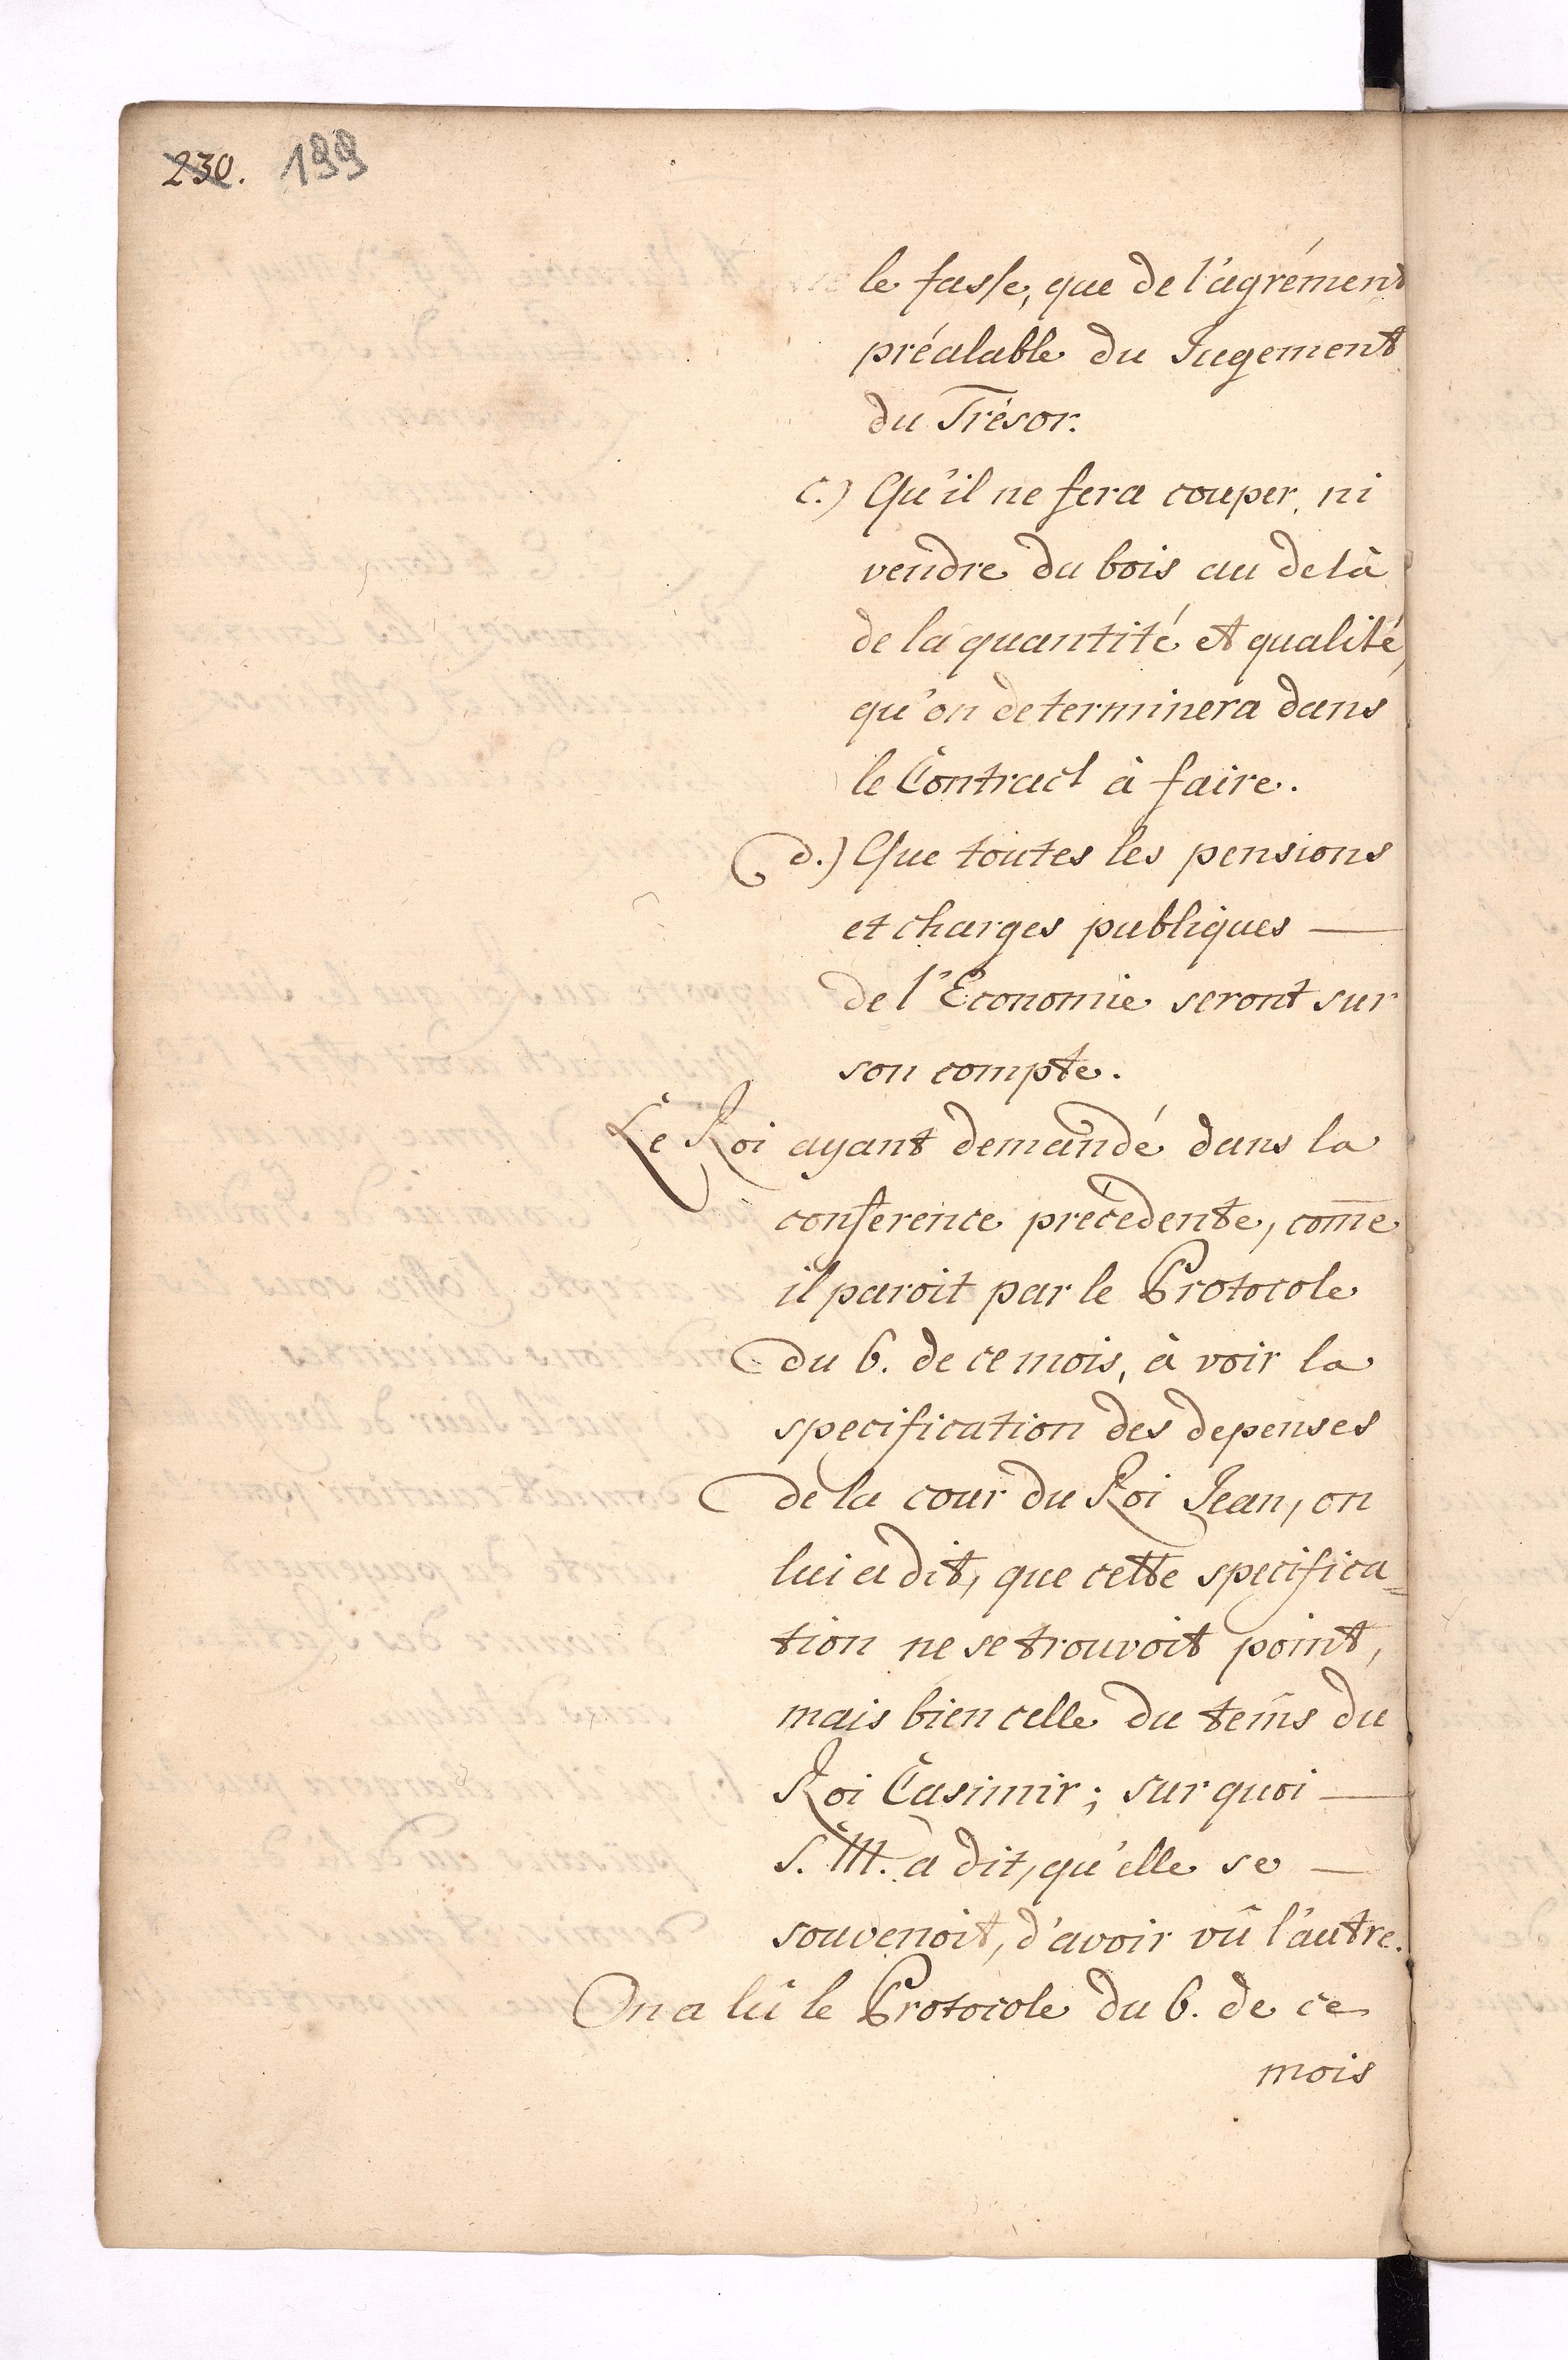 230. 199
le fasse, que de l'agrément
préalable du Jugement
du Trésor.
c.) Qu'il ne fera couper, ni
vendre du bois au delà
de la quantité et qualité,
qu'on determinera dans
le Contract à faire.
d.) Que toutes les pensions
et charges publiques —
de l'Economie seront sur
son compte.
Le Roi ayant demandé dans la
conference précedente, com̄e
il paroit par le Protocole
du 6. de ce mois, à voir la
specification des depenses
de la cour du Roi Jean, on
lui a dit, que cette specifica=
tion ne se trouvoit point,
mais bien celle du tem̄s du
Roi Casimir; sur quoi —
S. M. a dit, qu'elle se —
souvenoit, d'avoir vû l'autre.
On a lû le Protocole du 6. de ce
mois